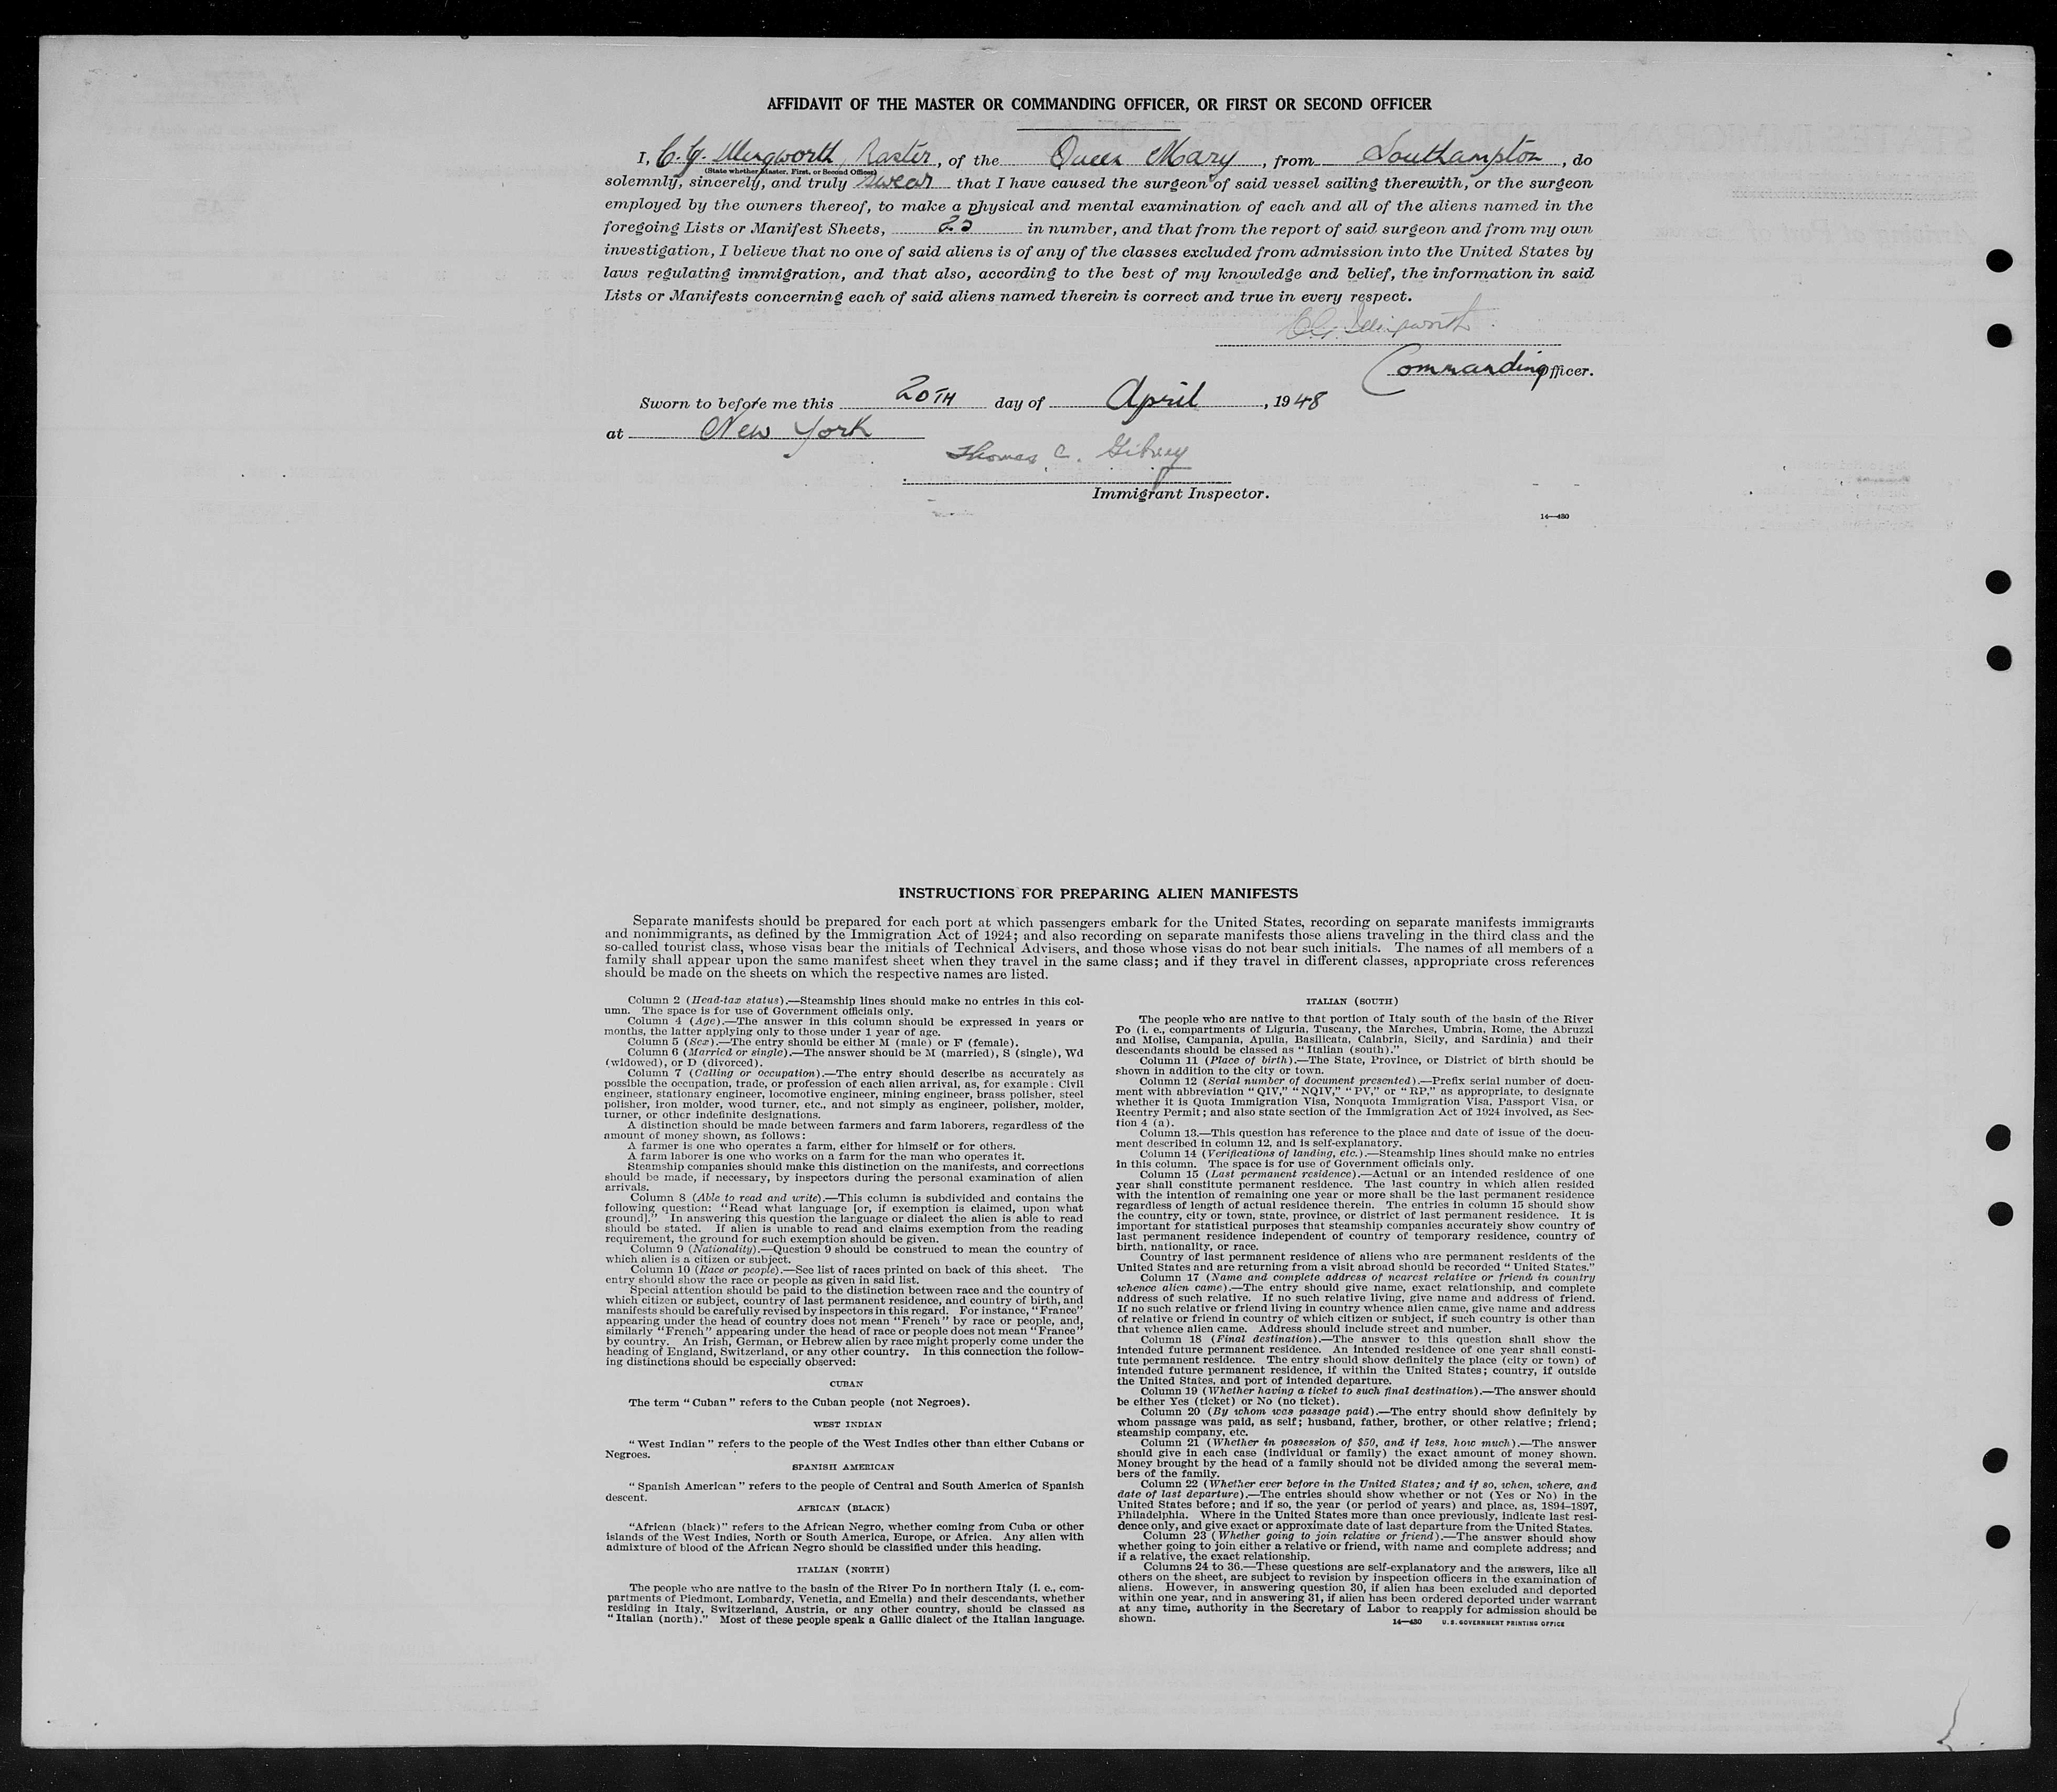 AFFIDAVIT OF THE MASTER OR COMMANDING OFFICER, OR FIRST OR SECOND OFFICER
I, C. G. Illingworth, Master, of the Queen Mary, from Southampton, do
(State whether Master, First, or Second Officer)
solemnly, sincerely, and truly swear that I have caused the surgeon of said vessel sailing therewith, or the surgeon
employed by the owners thereof, to make a physical and mental examination of each and all of the aliens named in the
foregoing Lists or Manifest Sheets, in number, and that from the report of said surgeon and from my own
investigation, I believe that no one of said aliens is of any of the classes excluded from admission into the United States by
laws regulating immigration, and that also, according to the best of my knowledge and belief, the information in said
Lists or Manifests concerning each of said aliens named therein is correct and true in every respect.
C.G. Illingworth
Commanding Officer.
Sworn to before me this 20TH day of April, 1948
at New York
Thomas C. Gibney
Immigrant Inspector.
14—430
INSTRUCTIONS FOR PREPARING ALIEN MANIFESTS
Separate manifests should be prepared for each port at which passengers embark for the United States, recording on separate manifests immigrants
and nonimmigrants, as defined by the Immigration Act of 1924; and also recording on separate manifests those aliens traveling in the third class and the
so-called tourist class, whose visas bear the initials of Technical Advisers, and those whose visas do not bear such initials. The names of all members of a
family shall appear upon the same manifest sheet when they travel in the same class; and if they travel in different classes, appropriate cross references
should be made on the sheets on which the respective names are listed.
Column 2 (Head-tax status).—Steamship lines should make no entries in this col-
umn. The space is for use of Government officials only.
Column 4 (Age).—The answer in this column should be expressed in years or
months, the latter applying only to those under 1 year of age.
Column 5 (Sex).—The entry should be either M (male) or F (female).
Column 6 (Married or single).—The answer should be M (married), S (single), Wd
(widowed), or D (divorced).
Column 7 (Calling or occupation).—The entry should describe as accurately as
possible the occupation, trade, or profession of each alien arrival, as, for example: Civil
engineer, stationary engineer, locomotive engineer, mining engineer, brass polisher, steel
polisher, iron molder, wood turner, etc., and not simply as engineer, polisher, molder,
turner, or other indefinite designations.
A distinction should be made between farmers and farm laborers, regardless of the
amount of money shown, as follows:
A farmer is one who operates a farm, either for himself or for others.
A farm laborer is one who works on a farm for the man who operates it.
Steamship companies should make this distinction on the manifests, and corrections
should be made, if necessary, by inspectors during the personal examination of alien
arrivals.
Column 8 (Able to read and write).—This column is subdivided and contains the
following question: "Read what language [or, if exemption is claimed, upon what
ground]." In answering this question the language or dialect the alien is able to read
should be stated. If alien is unable to read and claims exemption from the reading
requirement, the ground for such exemption should be given.
Column 9 (Nationality).—Question 9 should be construed to mean the country of
which alien is a citizen or subject.
Column 10 (Race or people).—See list of races printed on back of this sheet. The
entry should show the race or people as given in said list.
Special attention should be paid to the distinction between race and the country of
which citizen or subject, country of last permanent residence, and country of birth, and
manifests should be carefully revised by inspectors in this regard. For instance, "France"
appearing under the head of country does not mean "French" by race or people, and,
similarly "French" appearing under the head of race or people does not mean "France"
by country. An Irish, German, or Hebrew alien by race might properly come under the
heading of England, Switzerland, or any other country. In this connection the follow-
ing distinctions should be especially observed:
CUBAN
The term "Cuban" refers to the Cuban people (not Negroes).
WEST INDIAN
"West Indian" refers to the people of the West Indies other than either Cubans or
Negroes.
SPANISH AMERICAN
"Spanish American" refers to the people of Central and South America of Spanish
descent.
AFRICAN (BLACK)
"African (black)" refers to the African Negro, whether coming from Cuba or other
islands of the West Indies, North or South America, Europe, or Africa. Any alien with
admixture of blood of the African Negro should be classified under this heading.
ITALIAN (NORTH)
The people who are native to the basin of the River Po in northern Italy (i. e., com-
partments of Piedmont, Lombardy, Venetia, and Emelia) and their descendants, whether
residing in Italy, Switzerland, Austria, or any other country, should be classed as
"Italian (north)." Most of these people speak a Gallic dialect of the Italian language.
ITALIAN (SOUTH)
The people who are native to that portion of Italy south of the basin of the River
Po (i. e., compartments of Liguria, Tuscany, the Marches, Umbria, Rome, the Abruzzi
and Molise, Campania, Apulia, Basilicata, Calabria, Sicily, and Sardinia) and their
descendants should be classed as "Italian (south)."
Column 11 (Place of birth).—The State, Province, or District of birth should be
shown in addition to the city or town.
Column 12 (Serial number of document presented).—Prefix serial number of docu-
ment with abbreviation "QIV," "NQIV," "PV," or "RP," as appropriate, to designate
whether it is Quota Immigration Visa, Nonquota Immigration Visa, Passport Visa, or
Reentry Permit; and also state section of the Immigration Act of 1924 involved, as Sec-
tion 4 (a).
Column 13.—This question has reference to the place and date of issue of the docu-
ment described in column 12, and is self-explanatory.
Column 14 (Verifications of landing, etc.).—Steamship lines should make no entries
in this column. The space is for use of Government officials only.
Column 15 (Last permanent residence).—Actual or an intended residence of one
year shall constitute permanent residence. The last country in which alien resided
with the intention of remaining one year or more shall be the last permanent residence
regardless of length of actual residence therein. The entries in column 15 should show
the country, city or town, state, province, or district of last permanent residence. It is
important for statistical purposes that steamship companies accurately show country of
last permanent residence independent of country of temporary residence, country of
birth, nationality, or race.
Country of last permanent residence of aliens who are permanent residents of the
United States and are returning from a visit abroad should be recorded "United States."
Column 17 (Name and complete address of nearest relative or friend in country
whence alien came).—The entry should give name, exact relationship, and complete
address of such relative. If no such relative living, give name and address of friend.
If no such relative or friend living in country whence alien came, give name and address
of relative or friend in country of which citizen or subject, if such country is other than
that whence alien came. Address should include street and number.
Column 18 (Final destination).—The answer to this question shall show the
intended future permanent residence. An intended residence of one year shall consti-
tute permanent residence. The entry should show definitely the place (city or town) of
intended future permanent residence, if within the United States; country, if outside
the United States, and port of intended departure.
Column 19 (Whether having a ticket to such final destination).—The answer should
be either Yes (ticket) or No (no ticket).
Column 20 (By whom was passage paid).—The entry should show definitely by
whom passage was paid, as self; husband, father, brother, or other relative; friend;
steamship company, etc.
Column 21 (Whether in possession of $50, and if less, how much).—The answer
should give in each case (individual or family) the exact amount of money shown.
Money brought by the head of a family should not be divided among the several mem-
bers of the family.
Column 22 (Whether ever before in the United States; and if so, when, where, and
date of last departure).—The entries should show whether or not (Yes or No) in the
United States before; and if so, the year (or period of years) and place, as, 1894–1897,
Philadelphia. Where in the United States more than once previously, indicate last resi-
dence only, and give exact or approximate date of last departure from the United States.
Column 23 (Whether going to join relative or friend).—The answer should show
whether going to join either a relative or friend, with name and complete address; and
if a relative, the exact relationship.
Columns 24 to 36.—These questions are self-explanatory and the answers, like all
others on the sheet, are subject to revision by inspection officers in the examination of
aliens. However, in answering question 30, if alien has been excluded and deported
within one year, and in answering 31, if alien has been ordered deported under warrant
at any time, authority in the Secretary of Labor to reapply for admission should be
shown.
14—430 U. S. GOVERNMENT PRINTING OFFICE